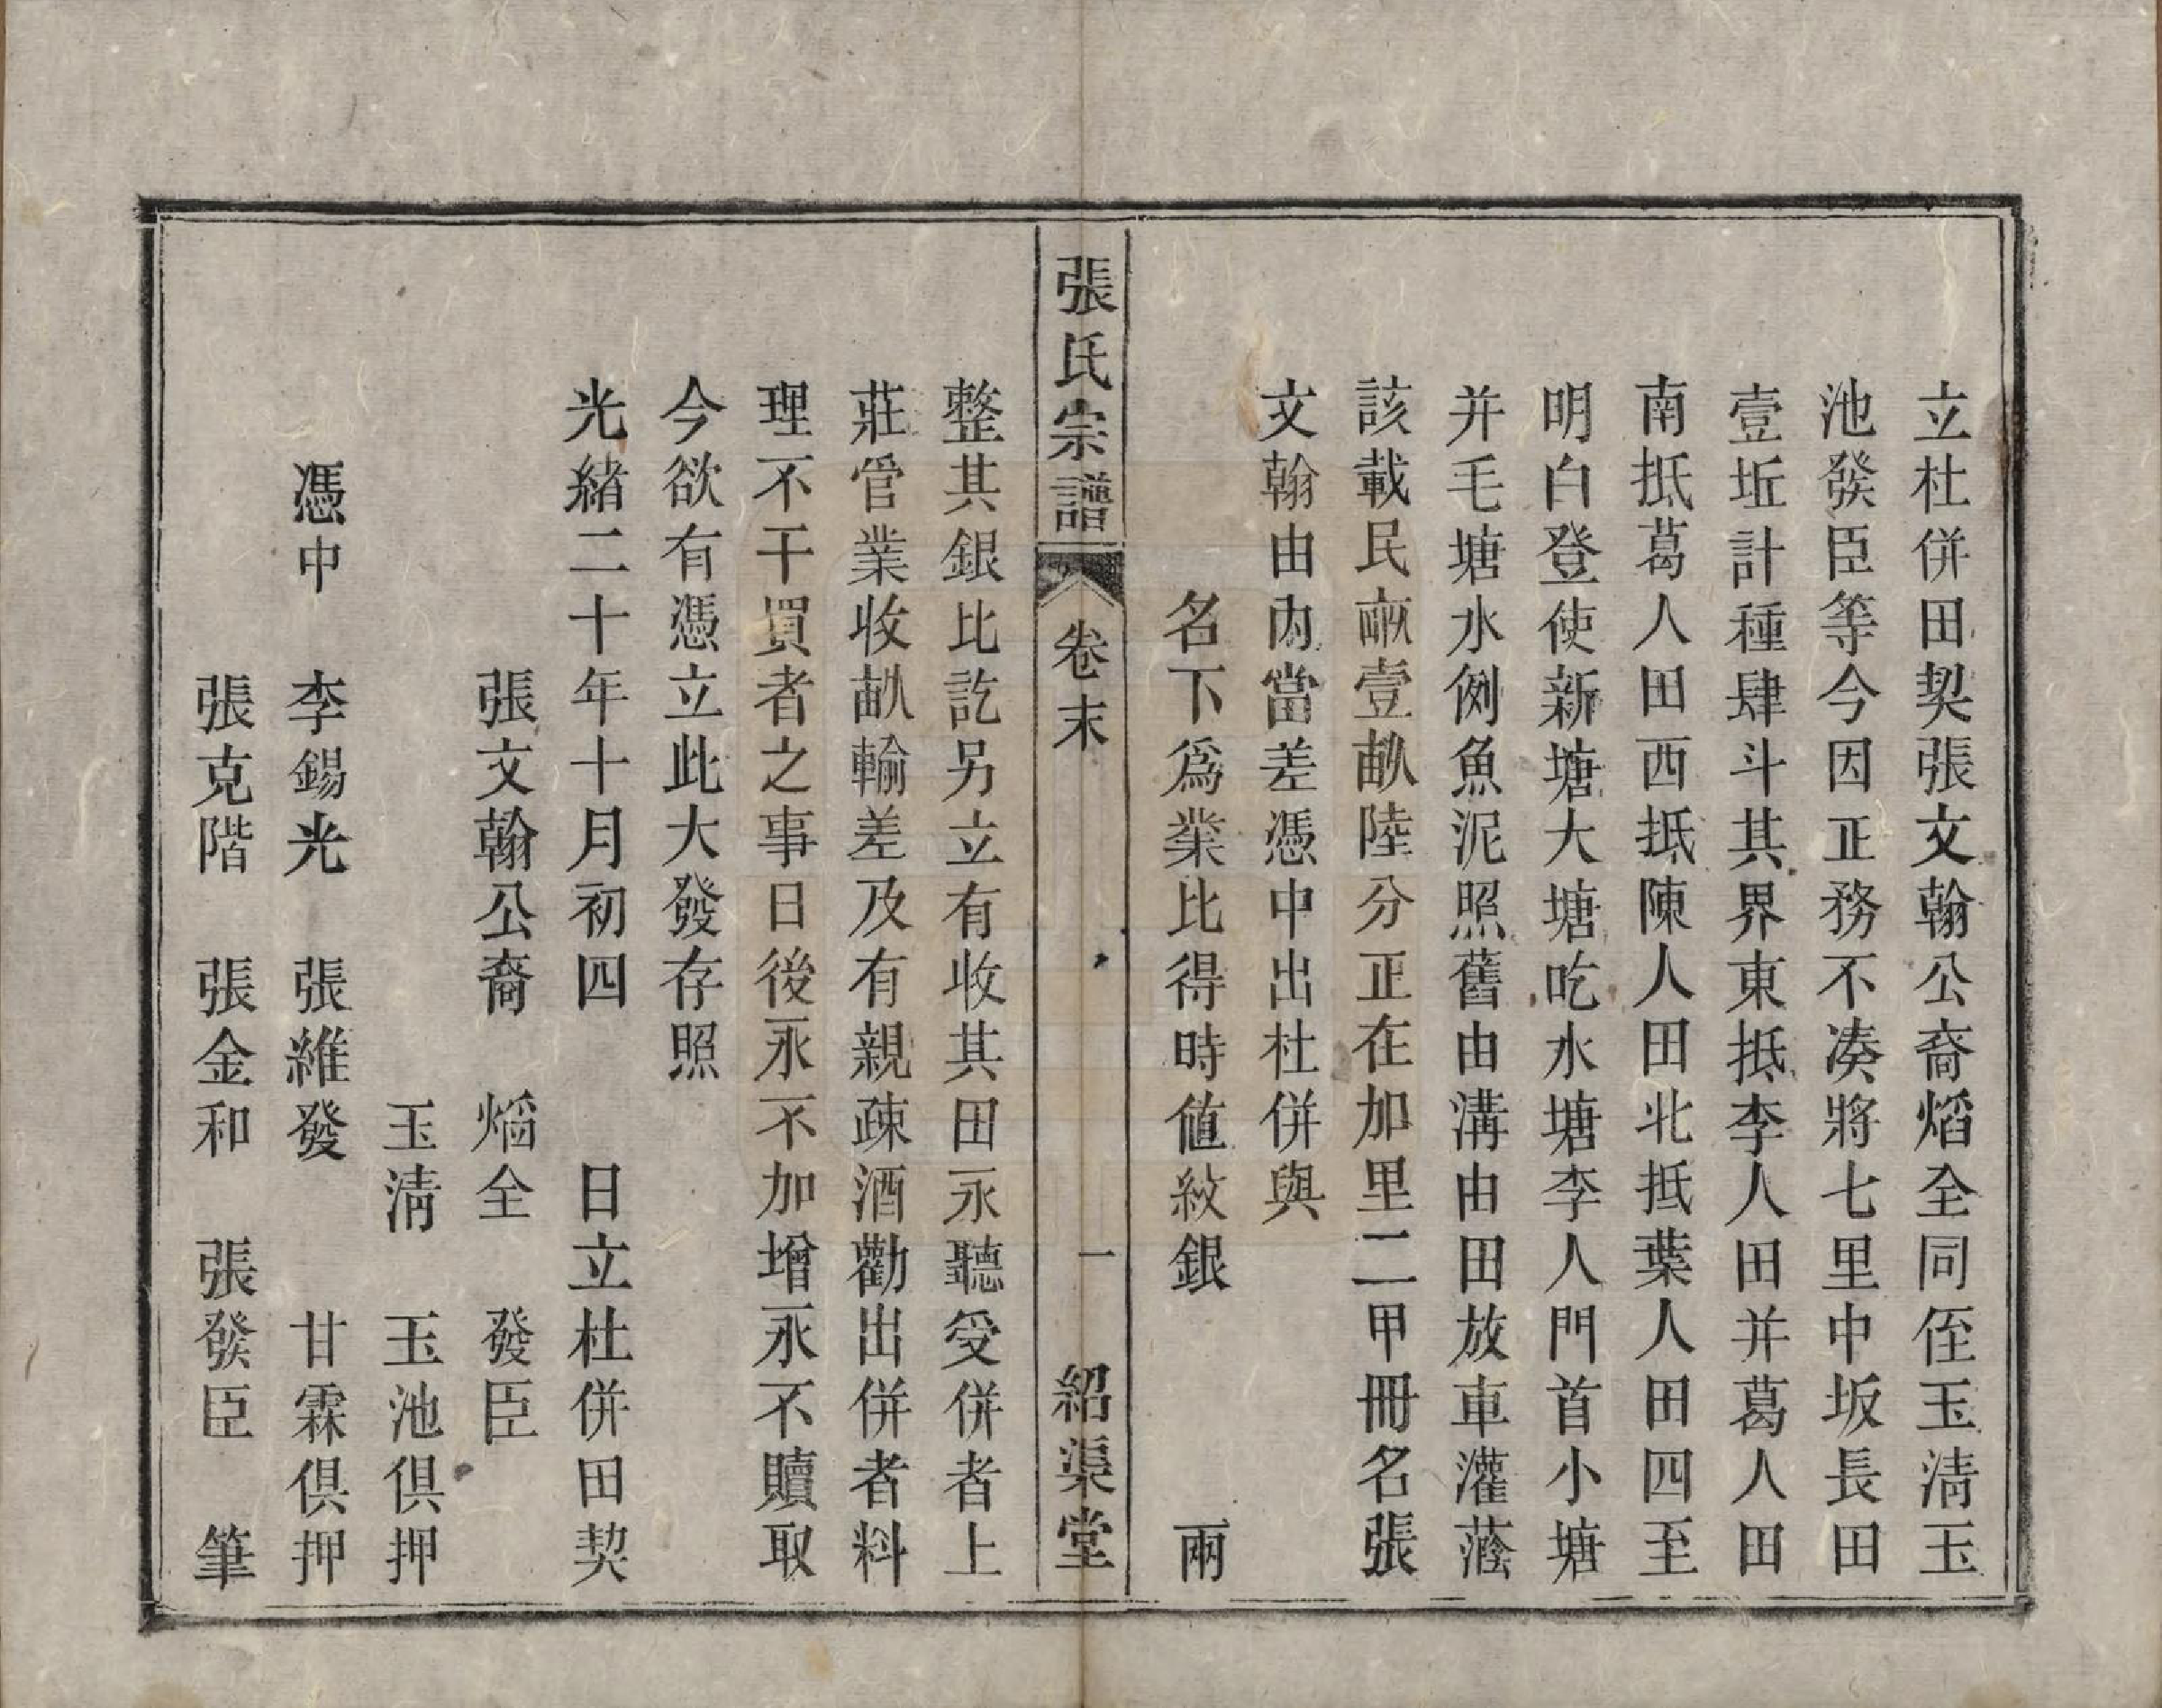 立杜併田契張文翰公裔熖全同侄玉淸玉
池發臣等今因正務不凑將七里中坂長田
壹坵計種肆斗其界東抵李人田并葛人田
南抵葛人田西抵陳人田北抵葉人田四至
明白登使新塘大塘吃水塘李人門首小塘
并毛塘水例魚泥照舊由溝由田放車灌蔭
該載民畝壹畝陸分正在加里二甲冊名張
文翰由內當差憑中出杜併與
名下爲業比得時値紋銀　　兩
張氏宗譜　卷末　一　紹渠堂
整其銀比訖另立有收其田永聽受併者上
莊管業收畝輸差及有親疎酒勸出併者料
理不干買者之事日後永不加增永不贖取
今欲有憑立此大發存照
光緖二十年十月初四　　日立杜併田契
張文翰公裔　熖全　發臣
玉淸　玉池俱押
憑中　李錫光　張維發　　甘霖俱押
張克階　張金和　張發臣　筆